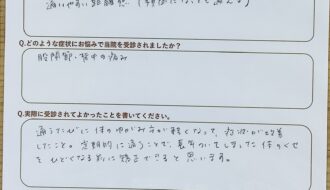 通いやすい距離感
Q.どのような症状にお悩みで当院を受診されましたか?
股関節・背中の痛み
Q.実際に受診されてよかったことを書いてください。
通うたびに体のゆがみ方が軽くなって、
したこと。定期的に通うことで、長年ついてしまった体のくせ
をひどくなる前に矯正できると思います。